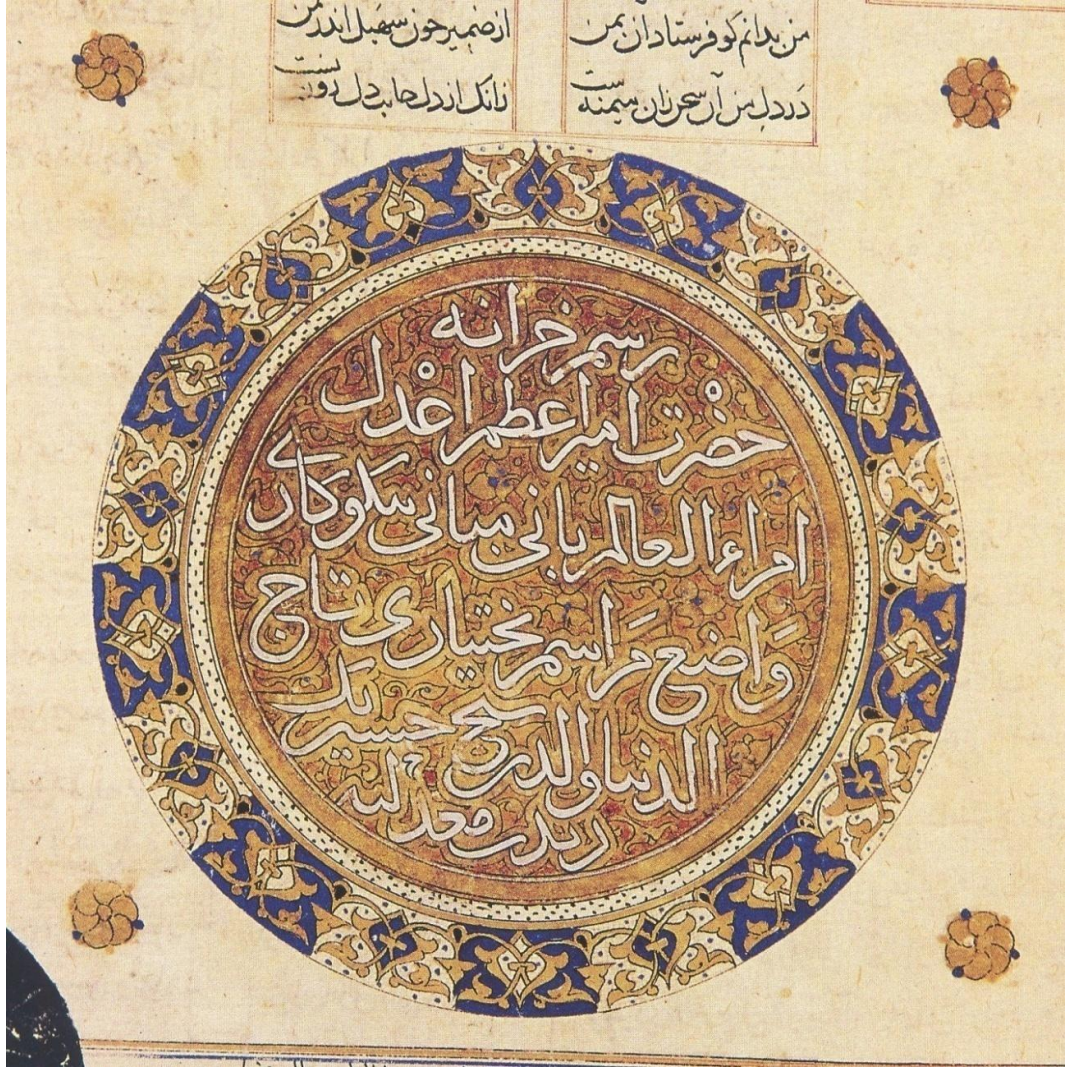 من بدانم کو فرستاد آن بمن از ضمیر چون سهیل اندر یمن
در دل من آن سخن زان میمنه‌ست زانک از دل جانب دل روزنه‌ست
رسم خزانه
حضرت امیر اعظم اعدل
امراء العالم بانی مبانی نیکوکاری
واضع مراسم بختیاری تاج
الدنیا والدین شیخ حسین بک
زیدت معدلته